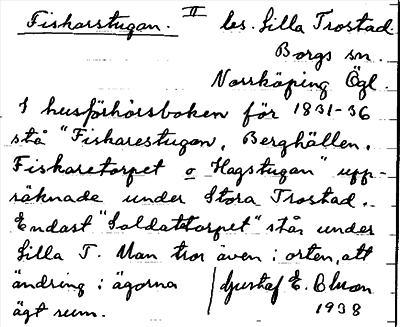 Fiskarstugan. II bes. Lilla Trostad
Borgs sn.
Norrköping Ögl.
I husförhörsboken för 1831-36
stå "Fiskarestugan, Berghällen,
Fiskaretorpet o Hagstugan" upp-
räknade under Stora Trostad.
Endast "Soldattorpet" står under
Lilla T. Man tror även i orten, att
ändring i ägorna
ägt rum.
Gustaf E. Bluom
1938